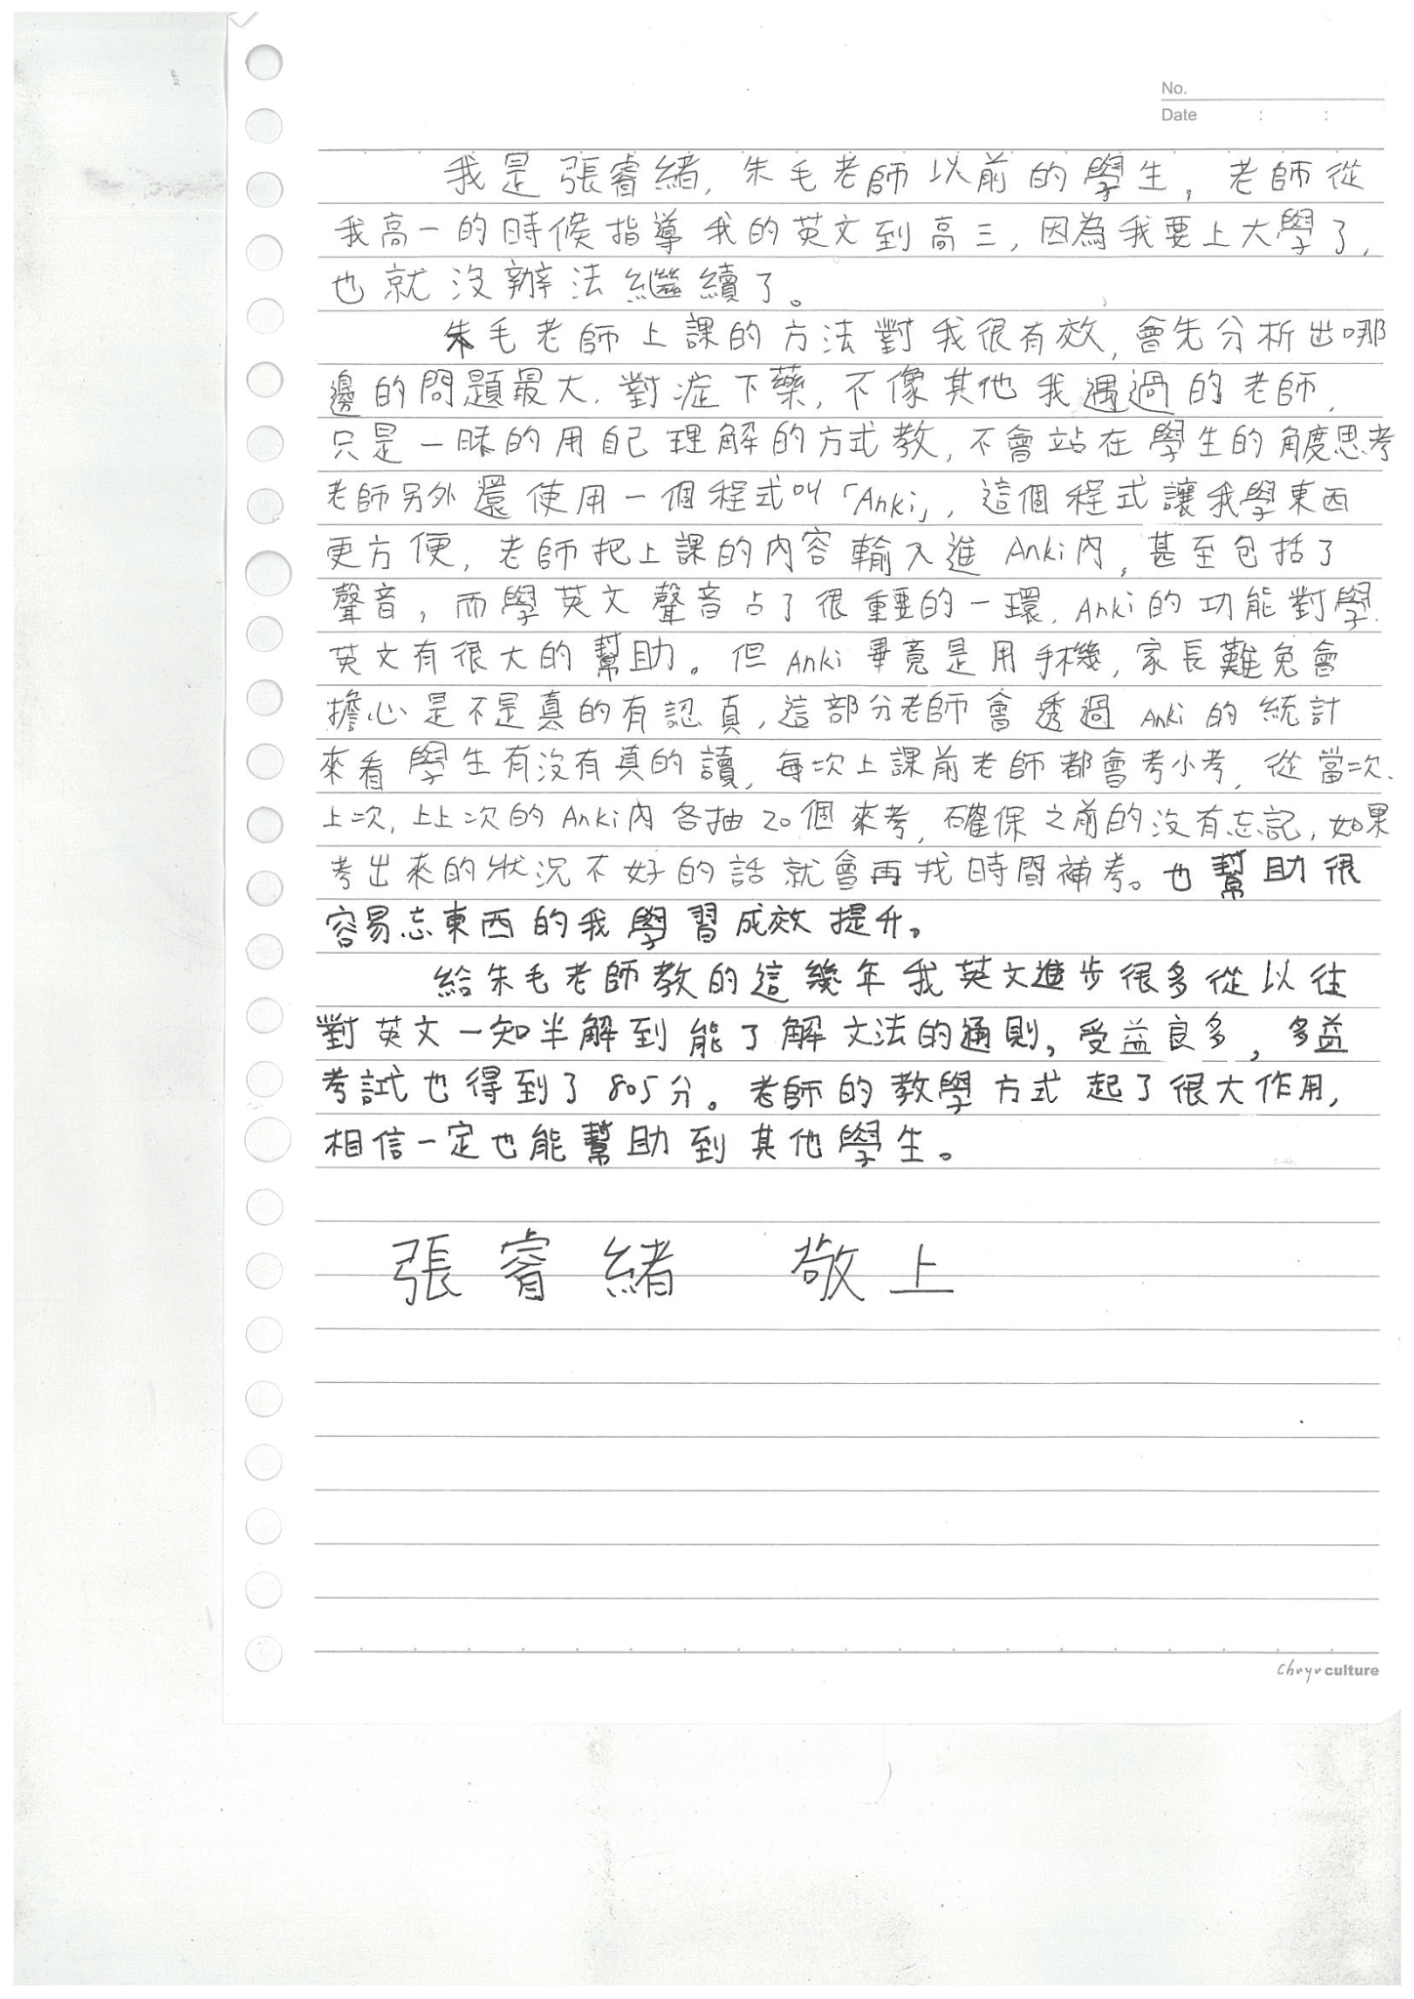 No.
Date : :
我是張睿緒,朱毛老師以前的學生,老師從
我高一的時候指導我的英文到高三,因為我要上大學了,
也就沒辦法繼續了。
朱毛老師上課的方法對我很有效,會先分析出哪
邊的問題最大.對症下藥,不像其他我遇過的老師,
只是一昧的用自己理解的方式教,不會站在學生的角度思考
老師另外還使用一個程式叫「Anki」,這個程式讓我學東西
更方便,老師把上課的內容輸入進Anki內,甚至包括了
聲音,而學英文聲音占了很重要的一環.Anki的功能對學
英文有很大的幫助。但Anki畢竟是用手機,家長難免會
擔心是不是真的有認真,這部分老師會透過Anki的統計
來看學生有沒有真的讀,每次上課前老師都會考小考,從當次、
上次,上上次的Anki內各抽20個來考,確保之前的沒有忘記,如果
考出來的狀況不好的話就會再找時間補考。也幫助很
容易忘東西的我學習成效提升。
給朱毛老師教的這幾年我英文進步很多從以往
對英文一知半解到能了解文法的通則,受益良多,多益
考試也得到了805分。老師的教學方式起了很大作用,
相信一定也能幫助到其他學生。
張睿緒 敬上
Chuyu culture